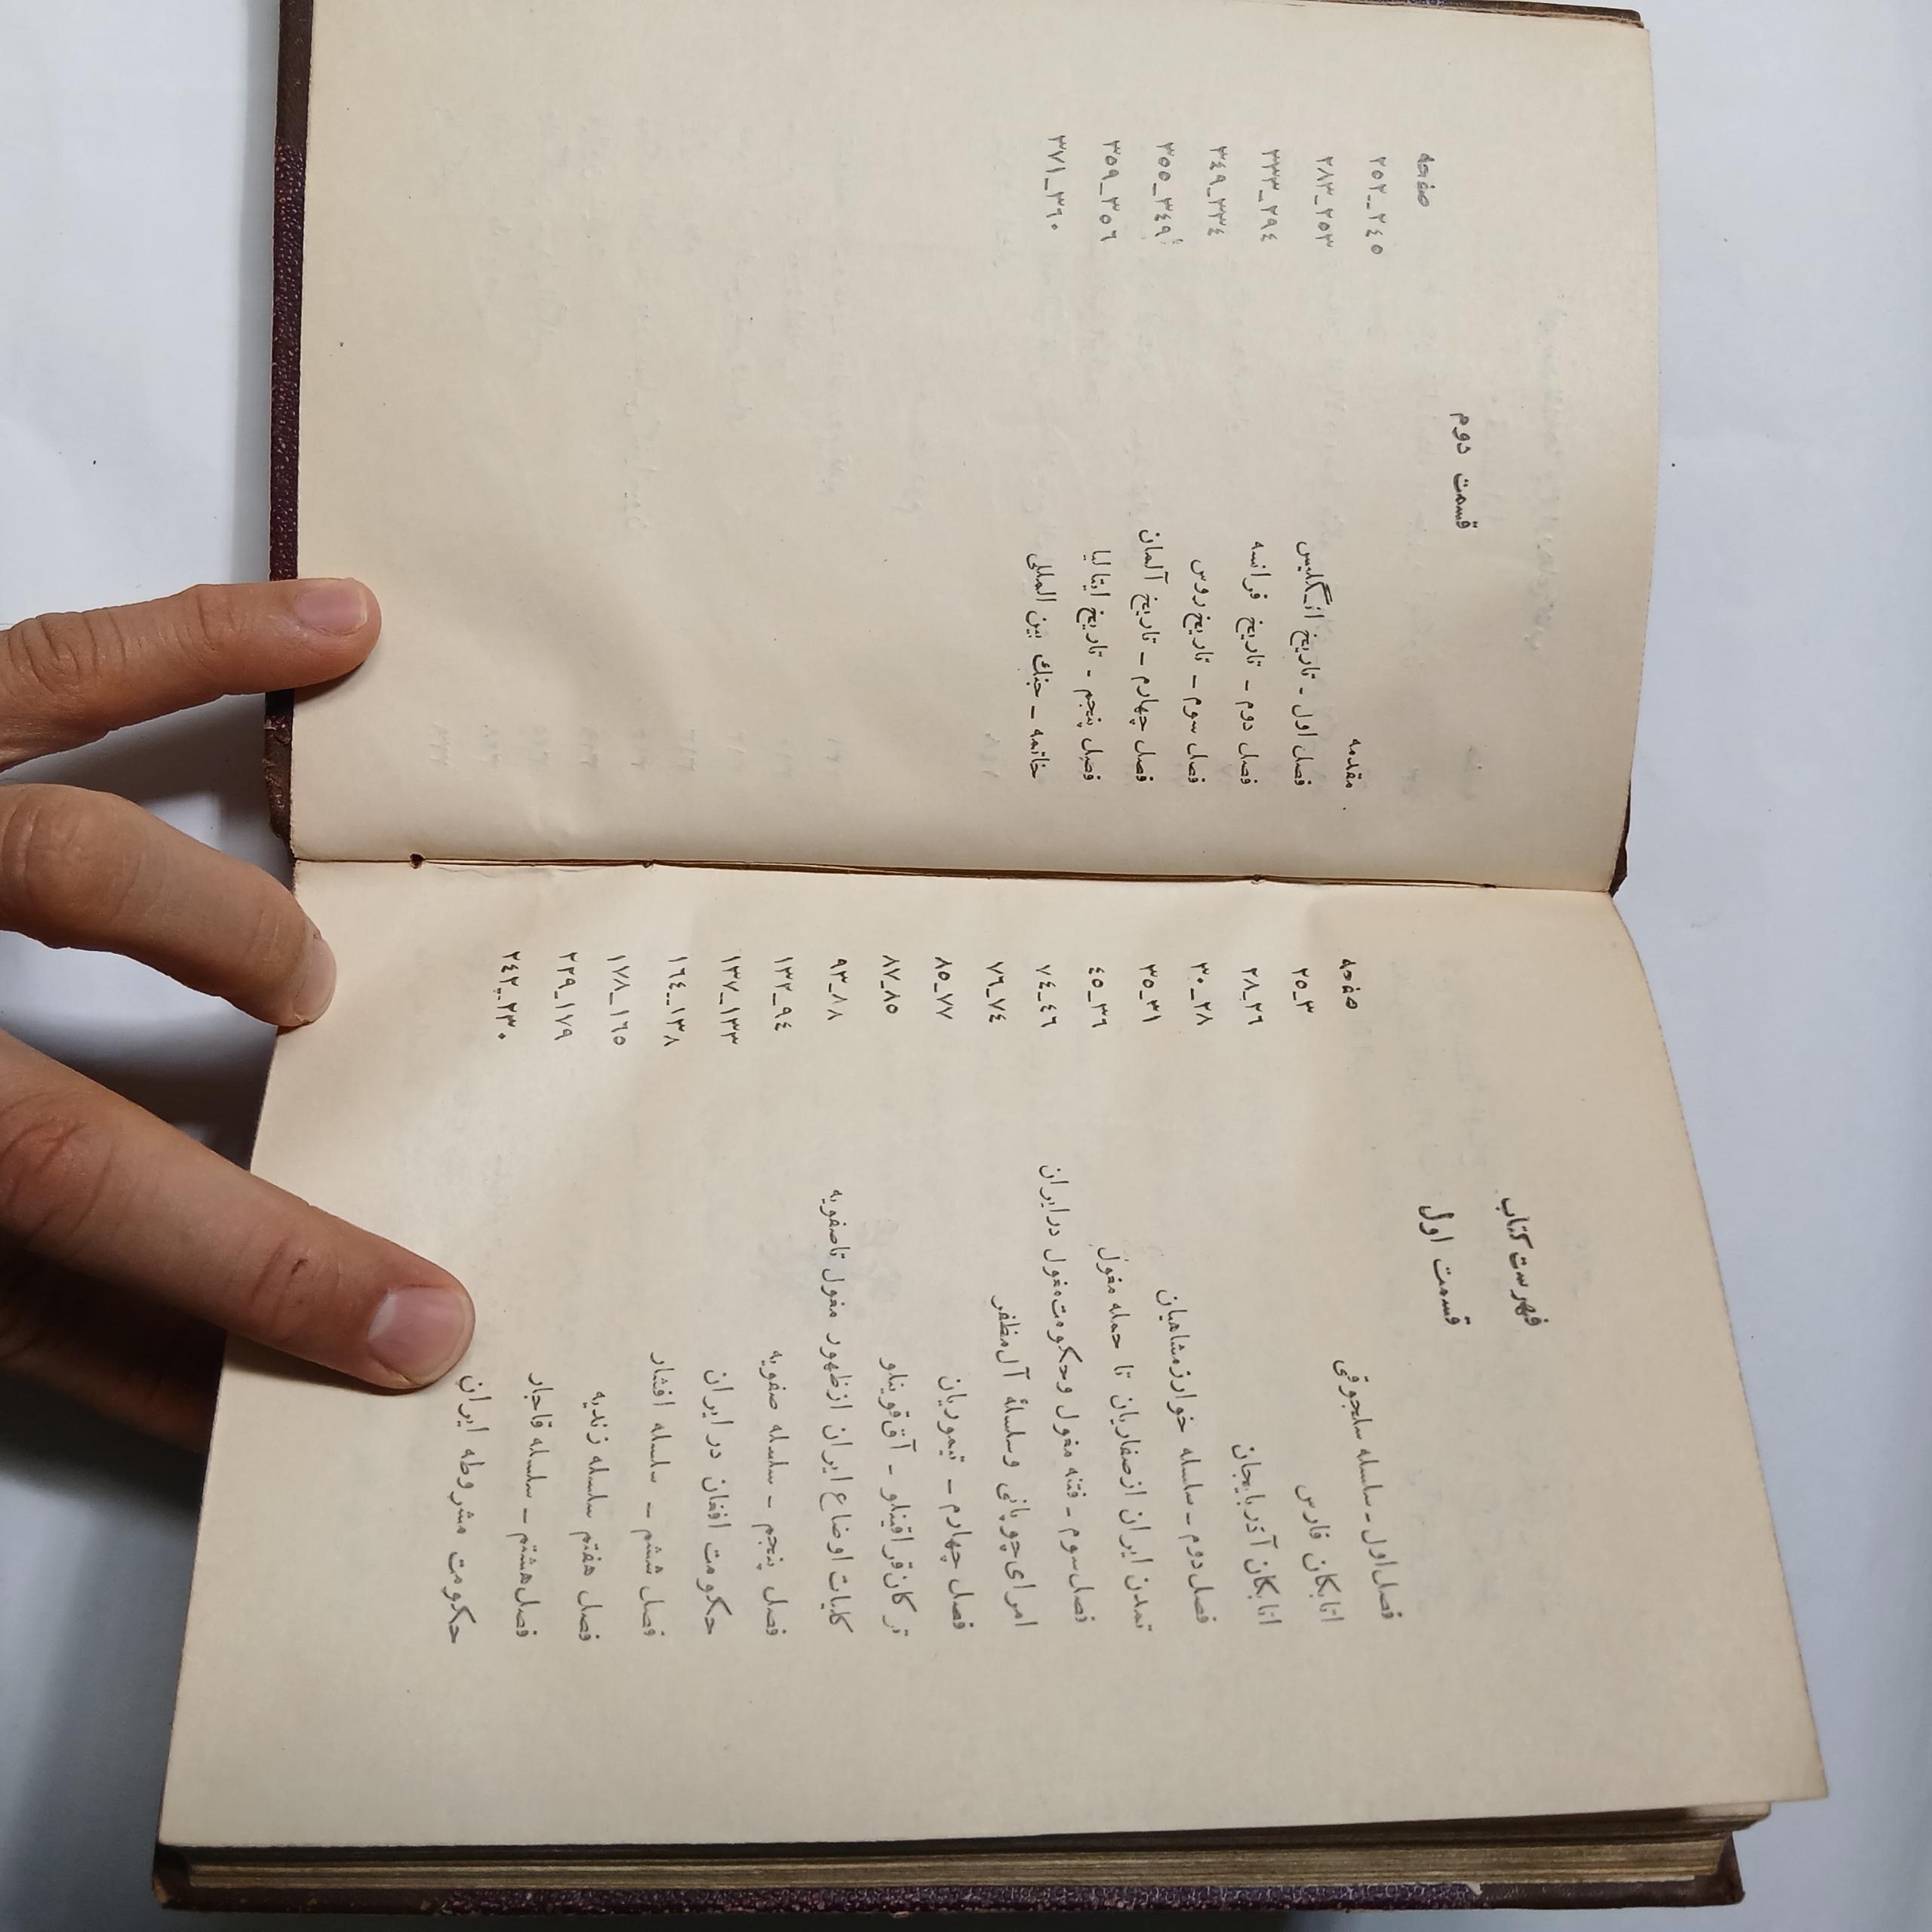 فهرست کتاب
قسمت اول
صفحه
فصل اول ـ سلسله سلجوقی ۳ـ۲۵
اتابکان فارس ۲۶ـ۲۸
اتابکان آذربایجان ۲۸ـ۳۰
فصل دوم ـ سلسله خوارزمشاهیان ۳۱ـ۳۵
تمدن ایران از صفاریان تا حمله مغول ۳٦ـ٤٥
فصل سوم ـ فتنه مغول وحکومت مغول در ایران ٤٦ـ۷٤
امرای چوپانی وسلسلهٔ آل مظفر ۷٤ـ۷٦
فصل چهارم ـ تیموریان ۷۷ـ۸٥
ترکان قراقینلو ـ آق قوینلو ۸٥ـ۸۷
کلیات اوضاع ایران از ظهور مغول تا صفویه ۸۸ـ۹۳
فصل پنجم ـ سلسله صفویه ۹٤ـ۱۳۲
حکومت افغان در ایران ۱۳۳ـ۱۳۷
فصل ششم ـ سلسله افشار ۱۳۸ـ۱٦٤
فصل هفتم سلسله زندیه ۱٦٥ـ۱۷۸
فصل هشتم ـ سلسله قاجار ۱۷۹ـ۲۲۹
حکومت مشروطه ایران ۲۳۰ـ۲٤۲
قسمت دوم
صفحه
مقدمه ۲٤٥ـ۲٥۲
فصل اول ـ تاریخ انگلیس ۲٥۳ـ۲۸۳
فصل دوم ـ تاریخ فرانسه ۲۹٤ـ۳۳۳
فصل سوم ـ تاریخ روس ۳۳٤ـ۳٤۹
فصل چهارم ـ تاریخ آلمان ۳٤۹ـ۳٥٥
فصل پنجم ـ تاریخ ایتالیا ۳٥٦ـ۳٥۹
خاتمه ـ جنك بین المللی ۳٦۰ـ۳۷۱